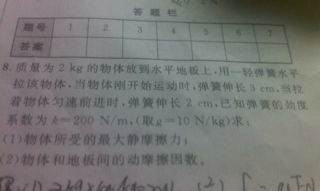 答 题 栏
题号 1 2 3 4 5 6 7
答案
8. 质量为 2 kg 的物体放到水平地板上,用一轻弹簧水平
拉该物体,当物体刚开始运动时,弹簧伸长 3 cm,当拉
着物体匀速前进时,弹簧伸长 2 cm,已知弹簧的劲度
系数为 k=200 N/m,(取 g=10 N/kg)求:
(1)物体所受的最大静摩擦力;
(2)物体和地板间的动摩擦因数。